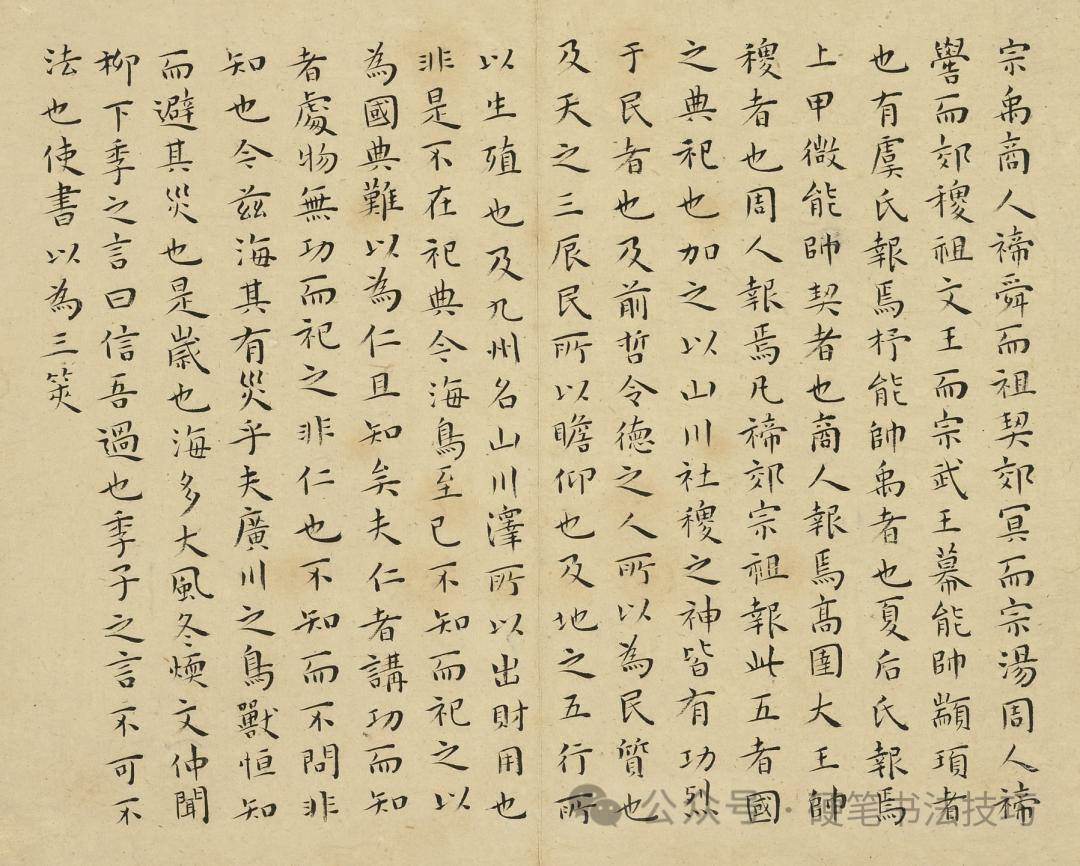 宗禹商人禘舜而祖契郊冥而宗湯周人禘
嚳而郊稷祖文王而宗武王幕能帥顓頊者
也有虞氏報焉杼能帥禹者也夏后氏報焉
上甲微能帥契者也商人報焉高圉大王帥
稷者也周人報焉凡禘郊宗祖報此五者國
之典祀也加之以山川社稷之神皆有功烈
于民者也及前哲令德之人所以為民質也
及天之三辰民所以瞻仰也及地之五行所
以生殖也及九州名山川澤所以出財用也
非是不在祀典今海鳥至已不知而祀之以
為國典難以為仁且知矣夫仁者講功而知
者處物無功而祀之非仁也不知而不問非
知也今茲海其有災乎夫廣川之鳥獸恒知
而避其災也是歲也海多大風冬煗文仲聞
柳下季之言曰信吾過也季子之言不可不
法也使書以為三筴
公众号·硬笔书法技巧